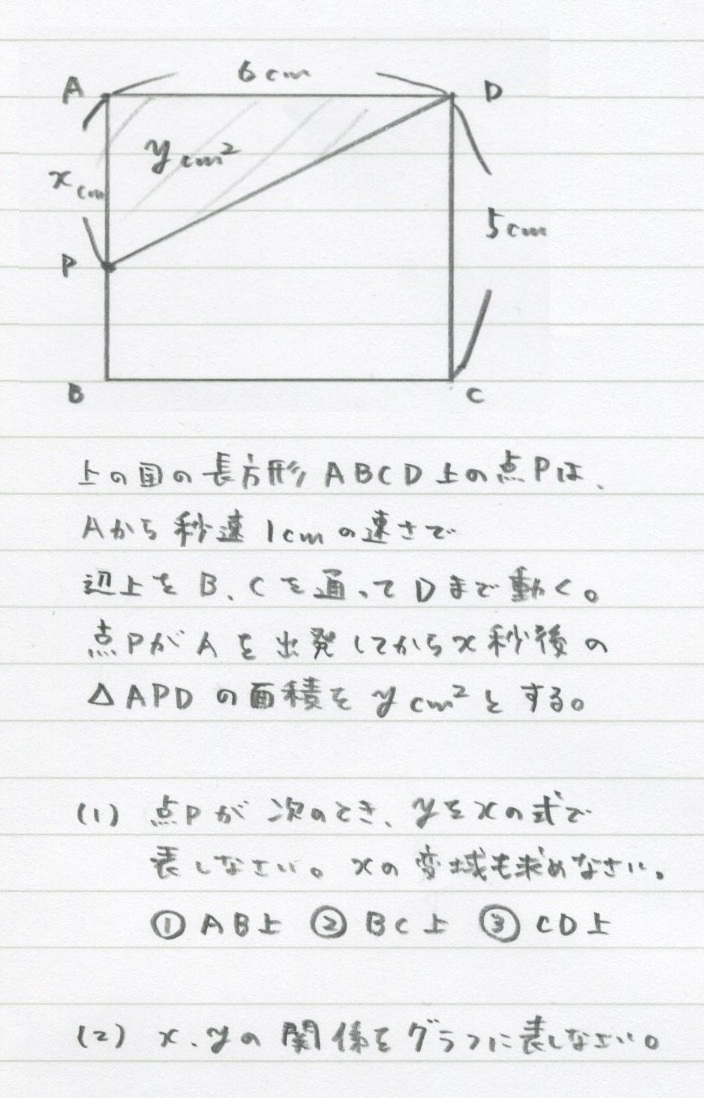 A 6cm D
ycm²
xcm
5cm
P
B C
上の図の長方形ABCD上の点Pは、
Aから秒速1cmの速さで
辺上をB、Cを通ってDまで動く。
点PがAを出発してからx秒後の
△APDの面積をycm²とする。
(1) 点Pが次のとき、yをxの式で
表しなさい。xの変域も求めなさい。
① AB上 ② BC上 ③ CD上
(2) x、yの関係をグラフに表しなさい。